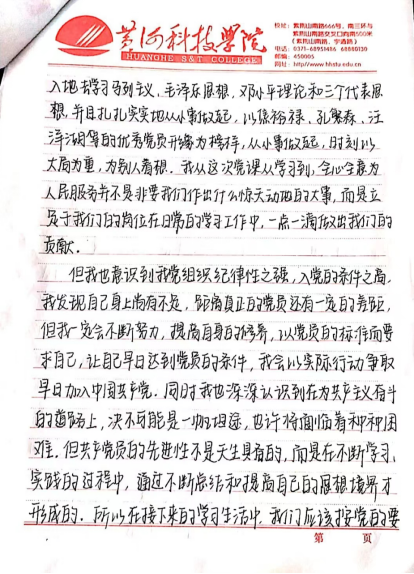 黄河科技学院
HUANGHE S&T COLLEGE
校址：紫荆山南路666号，南三环与
紫荆山南路交叉口向南500米
（紫荆山南路，学西路）
电话：0371-68951486 68880130
邮编：450005
网址：http://www.hhstu.edu.cn
入地去学习马列主义、毛泽东思想、邓小平理论和三个代表思
想，并且扎扎实实地从小事做起，以焦裕禄、孔繁森、汪
洋湖等的优秀党员形象为榜样，从小事做起，时刻以
大局为重，为别人着想。我从这次党课从学习到，全心全意为
人民服务并不是非要我们作出什么惊天动地的大事，而是立
足于我们的岗位在日常的学习工作中，一点一滴做出我们的
贡献．
但我也意识到我党组织纪律性之强，入党的条件之高，
我发现自己身上尚有不足，距离真正的党员还有一定的差距，
但我一定会不断努力，提高自身的修养，以党员的标准而要
求自己，让自己早日达到党员的条件，我会以实际行动争取
早日加入中国共产党．同时我也深深认识到在为共产主义奋斗
的道路上，决不可能是一帆坦途，也许将面临着种种困
难．但共产党员的先进性不是天生具有的，而是在不断学习、
实践的过程中，通过不断总结和提高自己的思想境界才
形成的．所以在接下来的学习生活中，我们应该按党的要
第 页